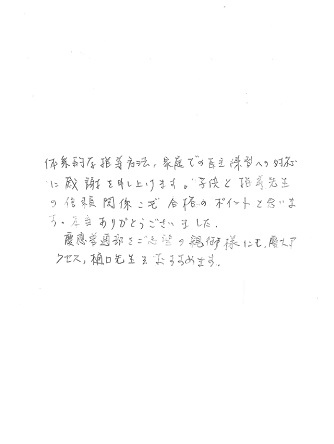 体系的な指導方法、家庭での自主学習への対応
に感謝を申し上げます。子供と指導先生
の信頼関係こそ合格のポイントと思いま
す。ありがとうございました。
慶應幼稚部をご志望の親御様にも、
クセス、樋口先生をおすすめます。